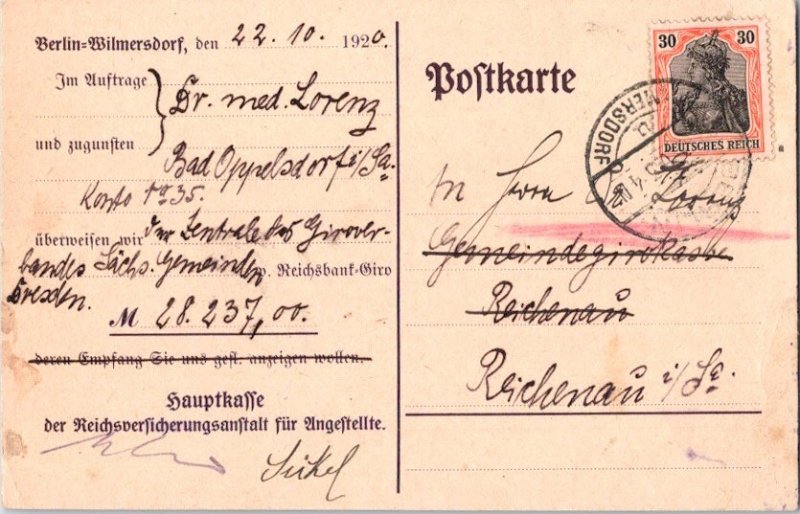 Berlin-Wilmersdorf, den 22. 10. 1920.
Im Auftrage
und zugunsten
Dr. med. Lorenz
Bad Oppelsdorf i/Sa.
Konto 1035.
überweisen wir der Zentrale des Girover-
bandes Sächs. Gemeinden p. Reichsbank-Giro
Dresden.
M 28.237,00.
deren Empfang Sie uns gefl. anzeigen wollen.
Hauptkasse
der Reichsversicherungsanstalt für Angestellte.
Postkarte
30 30
DEUTSCHES REICH
Herrn Dr. Lorenz
Gemeindegirokasse
Reichenau
Reichenau i/Sa.